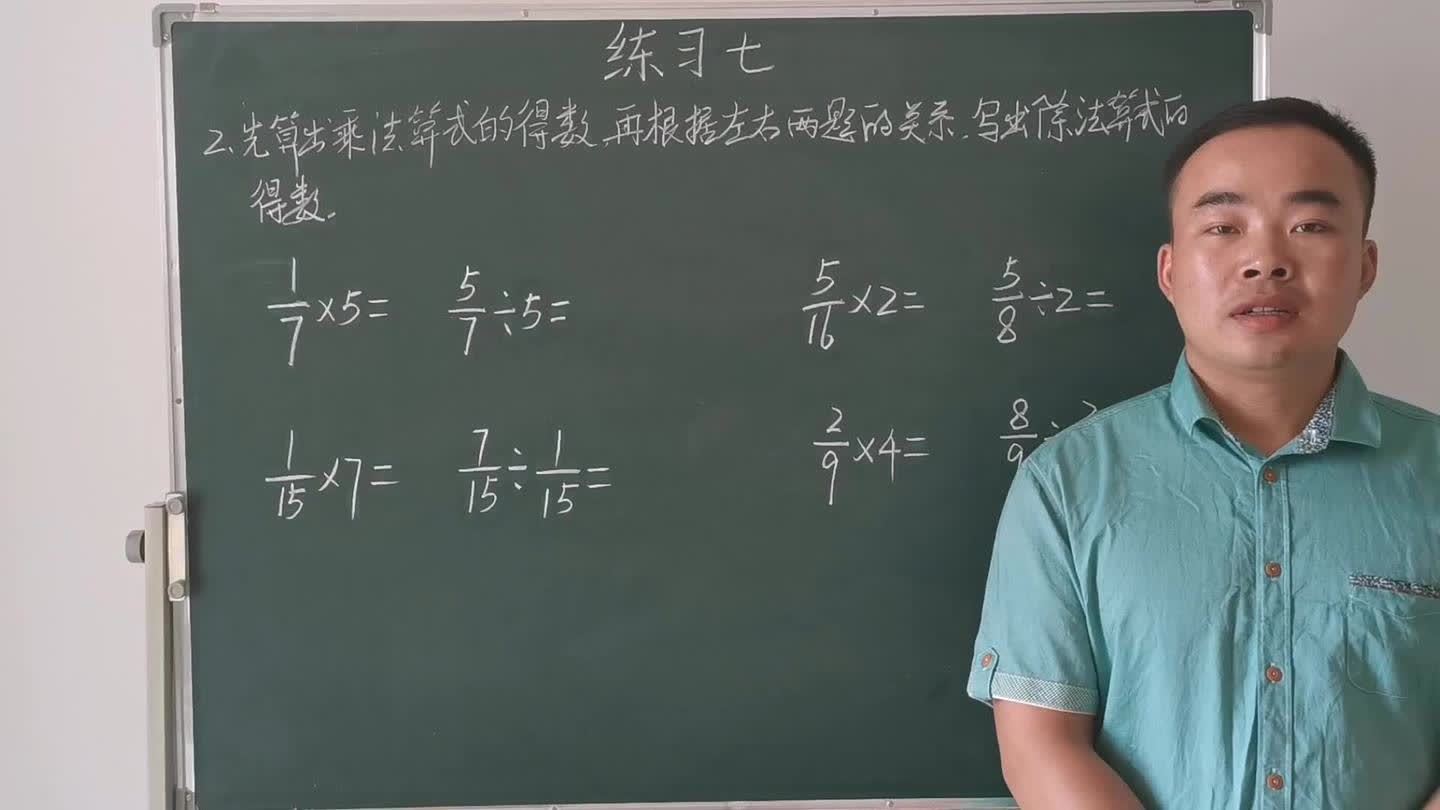 练习七
2、先算出乘法算式的得数,再根据左右两题的关系,写出除法算式的
得数.
1/7×5= 5/7÷5= 5/16×2= 5/8÷2=
1/15×7= 7/15÷1/15= 2/9×4= 8/9÷